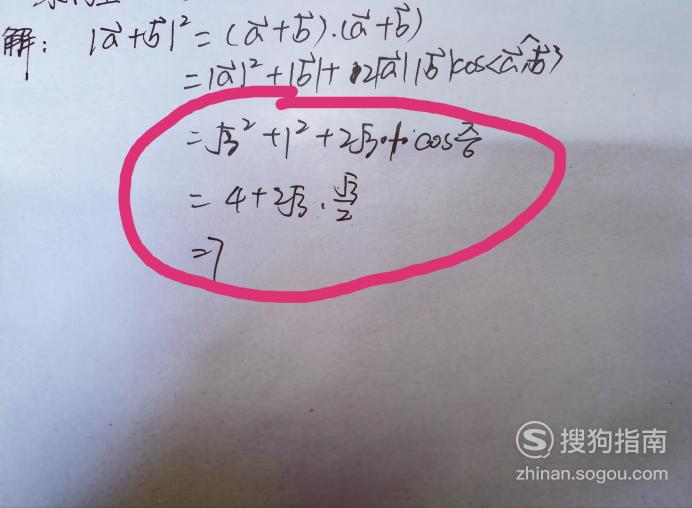 解: |a⃗+b⃗|² = (a⃗+b⃗).(a⃗+b⃗)
= |a⃗|²+|b⃗|+2|a⃗||b⃗|cos<a⃗,b⃗>
= √3²+1²+2√3·1·cosπ/6
= 4+2√3·√3/2
=7
搜狗指南
zhinan.sogou.com